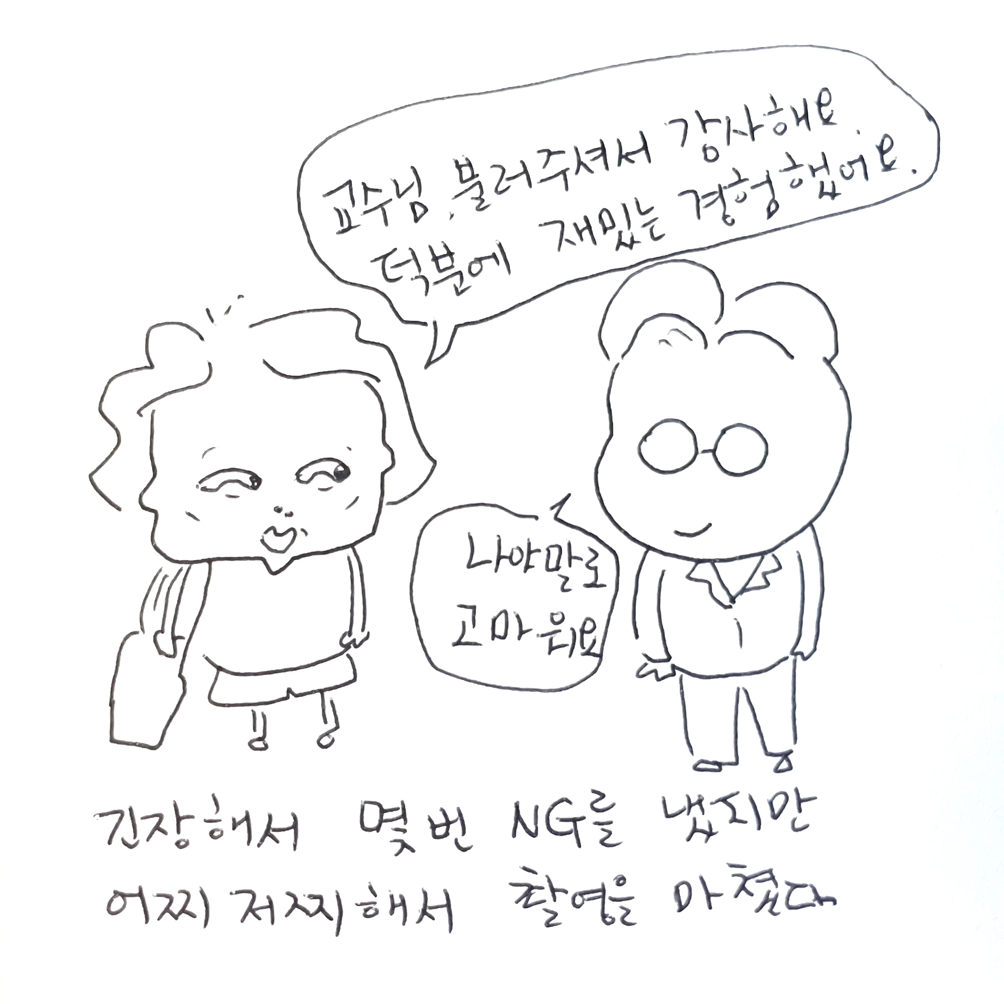 교수님.불러주셔서 감사해요.
덕분에 재밌는 경험했어요.
나야말로
고마워요
긴장해서 몇번 NG를 냈지만
어찌저찌해서 촬영을 마쳤다